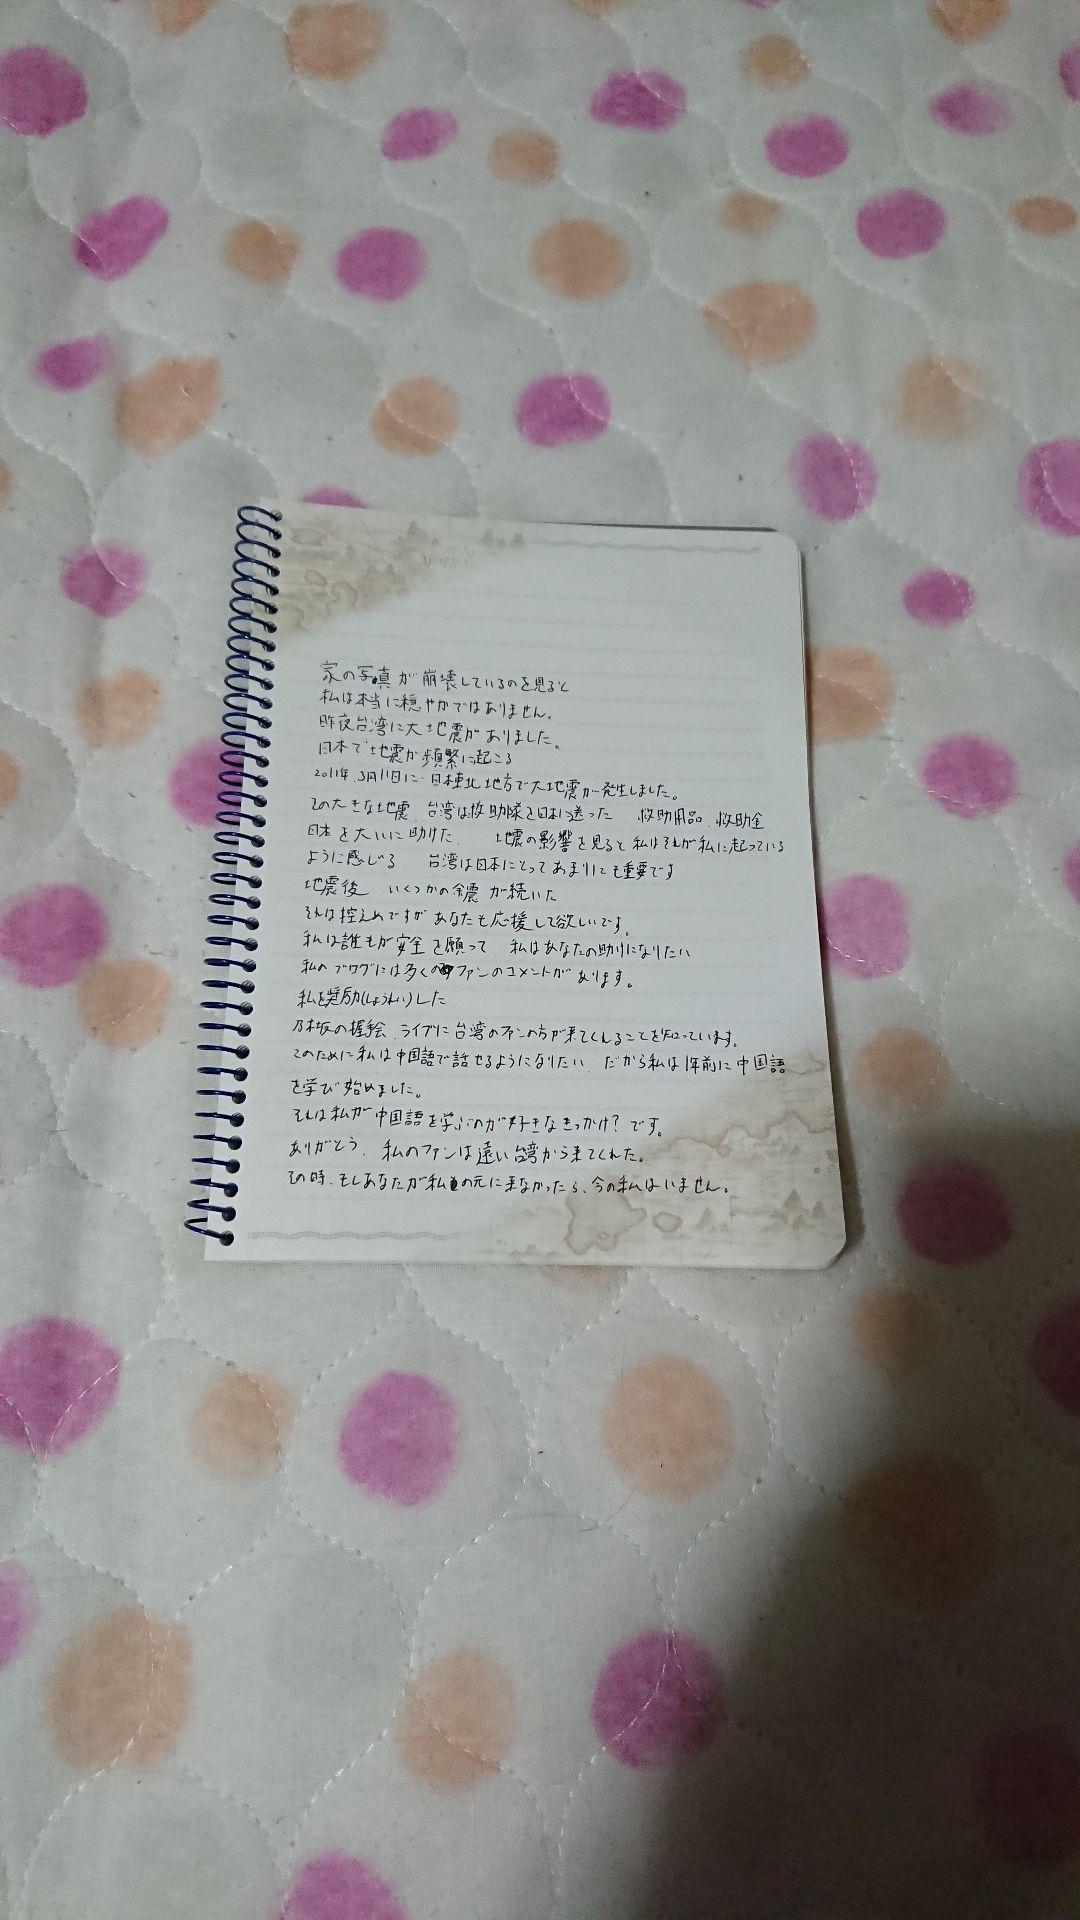 家の写真が崩壊しているのを見ると
私は本当に穏やかではありません。
昨夜台湾に大地震がありました。
日本で地震が頻繁に起こる
2011年3月11日に 日本東北地方で大地震が発生しました。
その大きな地震、台湾は救助隊を日本に送った 救助用品、救助金
日本を大いに助けた 地震の影響を見ると私はそれが私に起っている
ように感じる 台湾は日本にとってあまりにも重要です
地震後 いくつかの余震が続いた
それは控えめですがあなたも応援して欲しいです。
私は誰もが安全を願って 私はあなたの助けになりたい
私のブログには多くのファンのコメントがあります。
私を奨励(しょうれい)した
乃木坂の握手会、ライブに台湾のファンの方が来てくれることを知っています。
このために私は中国語で話せるようになりたい、だから私は1年前に中国語
を学び始めました。
それは私が中国語を学ぶのが好きなきっかけ?です。
ありがとう、私のファンは遠い台湾から来てくれた。
その時、もしあなたが私の元に来なかったら、今の私はいません。